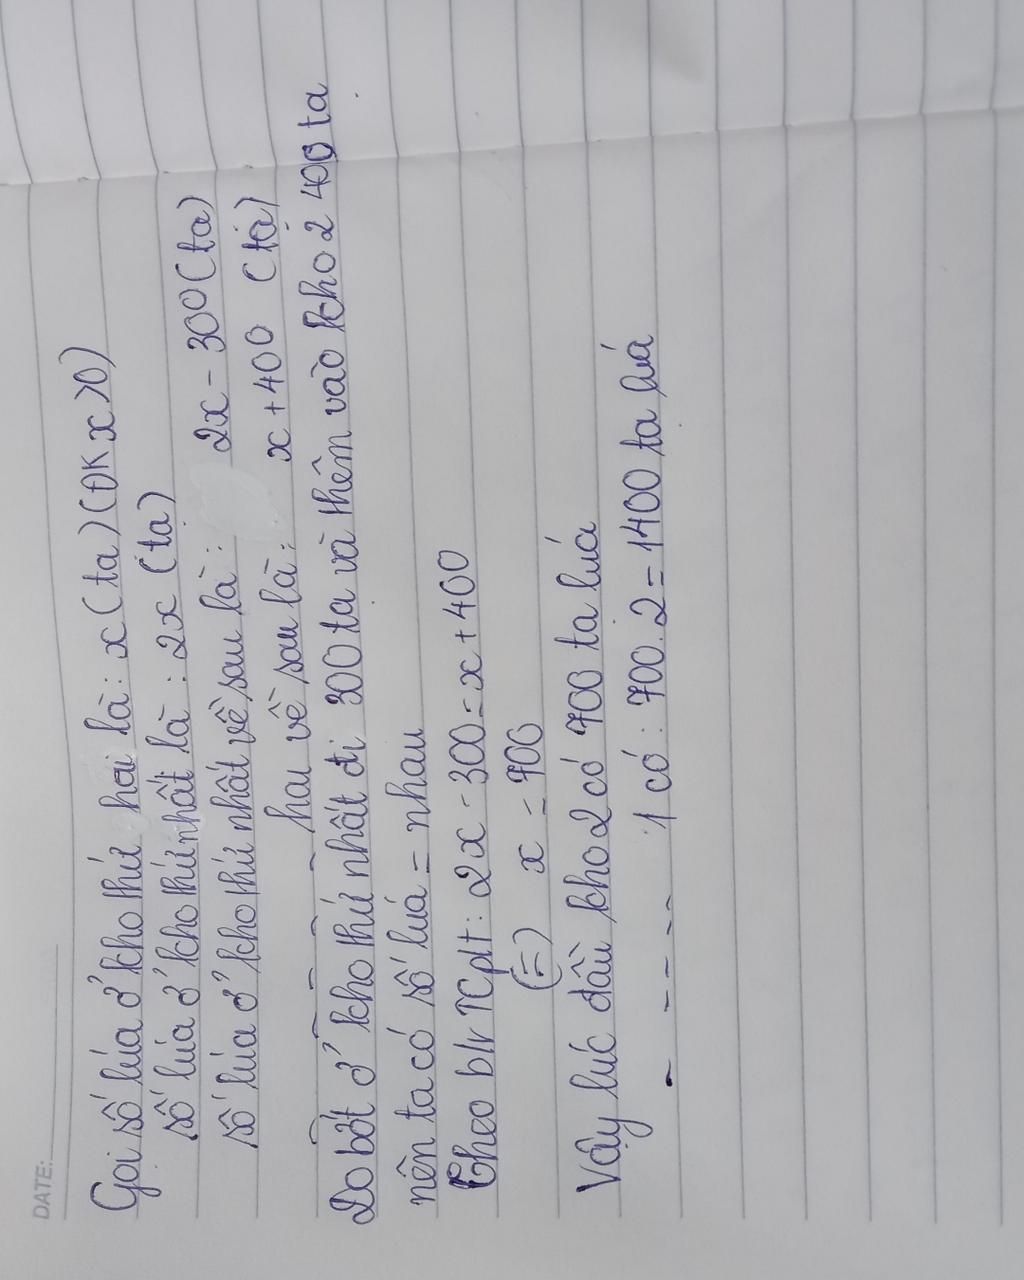 DATE:
Gọi số lúa ở kho thứ hai là: x (tạ) (ĐK x>0)
số lúa ở kho thứ nhất là : 2x (tạ)
số lúa ở kho thứ nhất về sau là: 2x - 300 (tạ)
- - - - - hai về sau là: x + 400 (tạ)
Do bớt ở kho thứ nhất đi 300 tạ và thêm vào kho 2 400 tạ
nên ta có số lúa = nhau
Theo btr TCpt: 2x - 300 = x + 400
(=) x = 700
Vậy lúc đầu kho 2 có 700 tạ lúa
- - - - - 1 có : 700.2 = 1400 tạ lúa